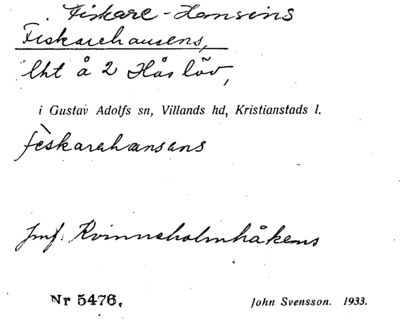 Fiskare-Hansens
Fiskarehansens,
lht å 2 Håslöv,
i Gustav Adolfs sn, Villands hd, Kristianstads l.
fèskarahansans
Jmf. Kvinneholmhåkens
Nr 5476.
John Svensson. 1933.